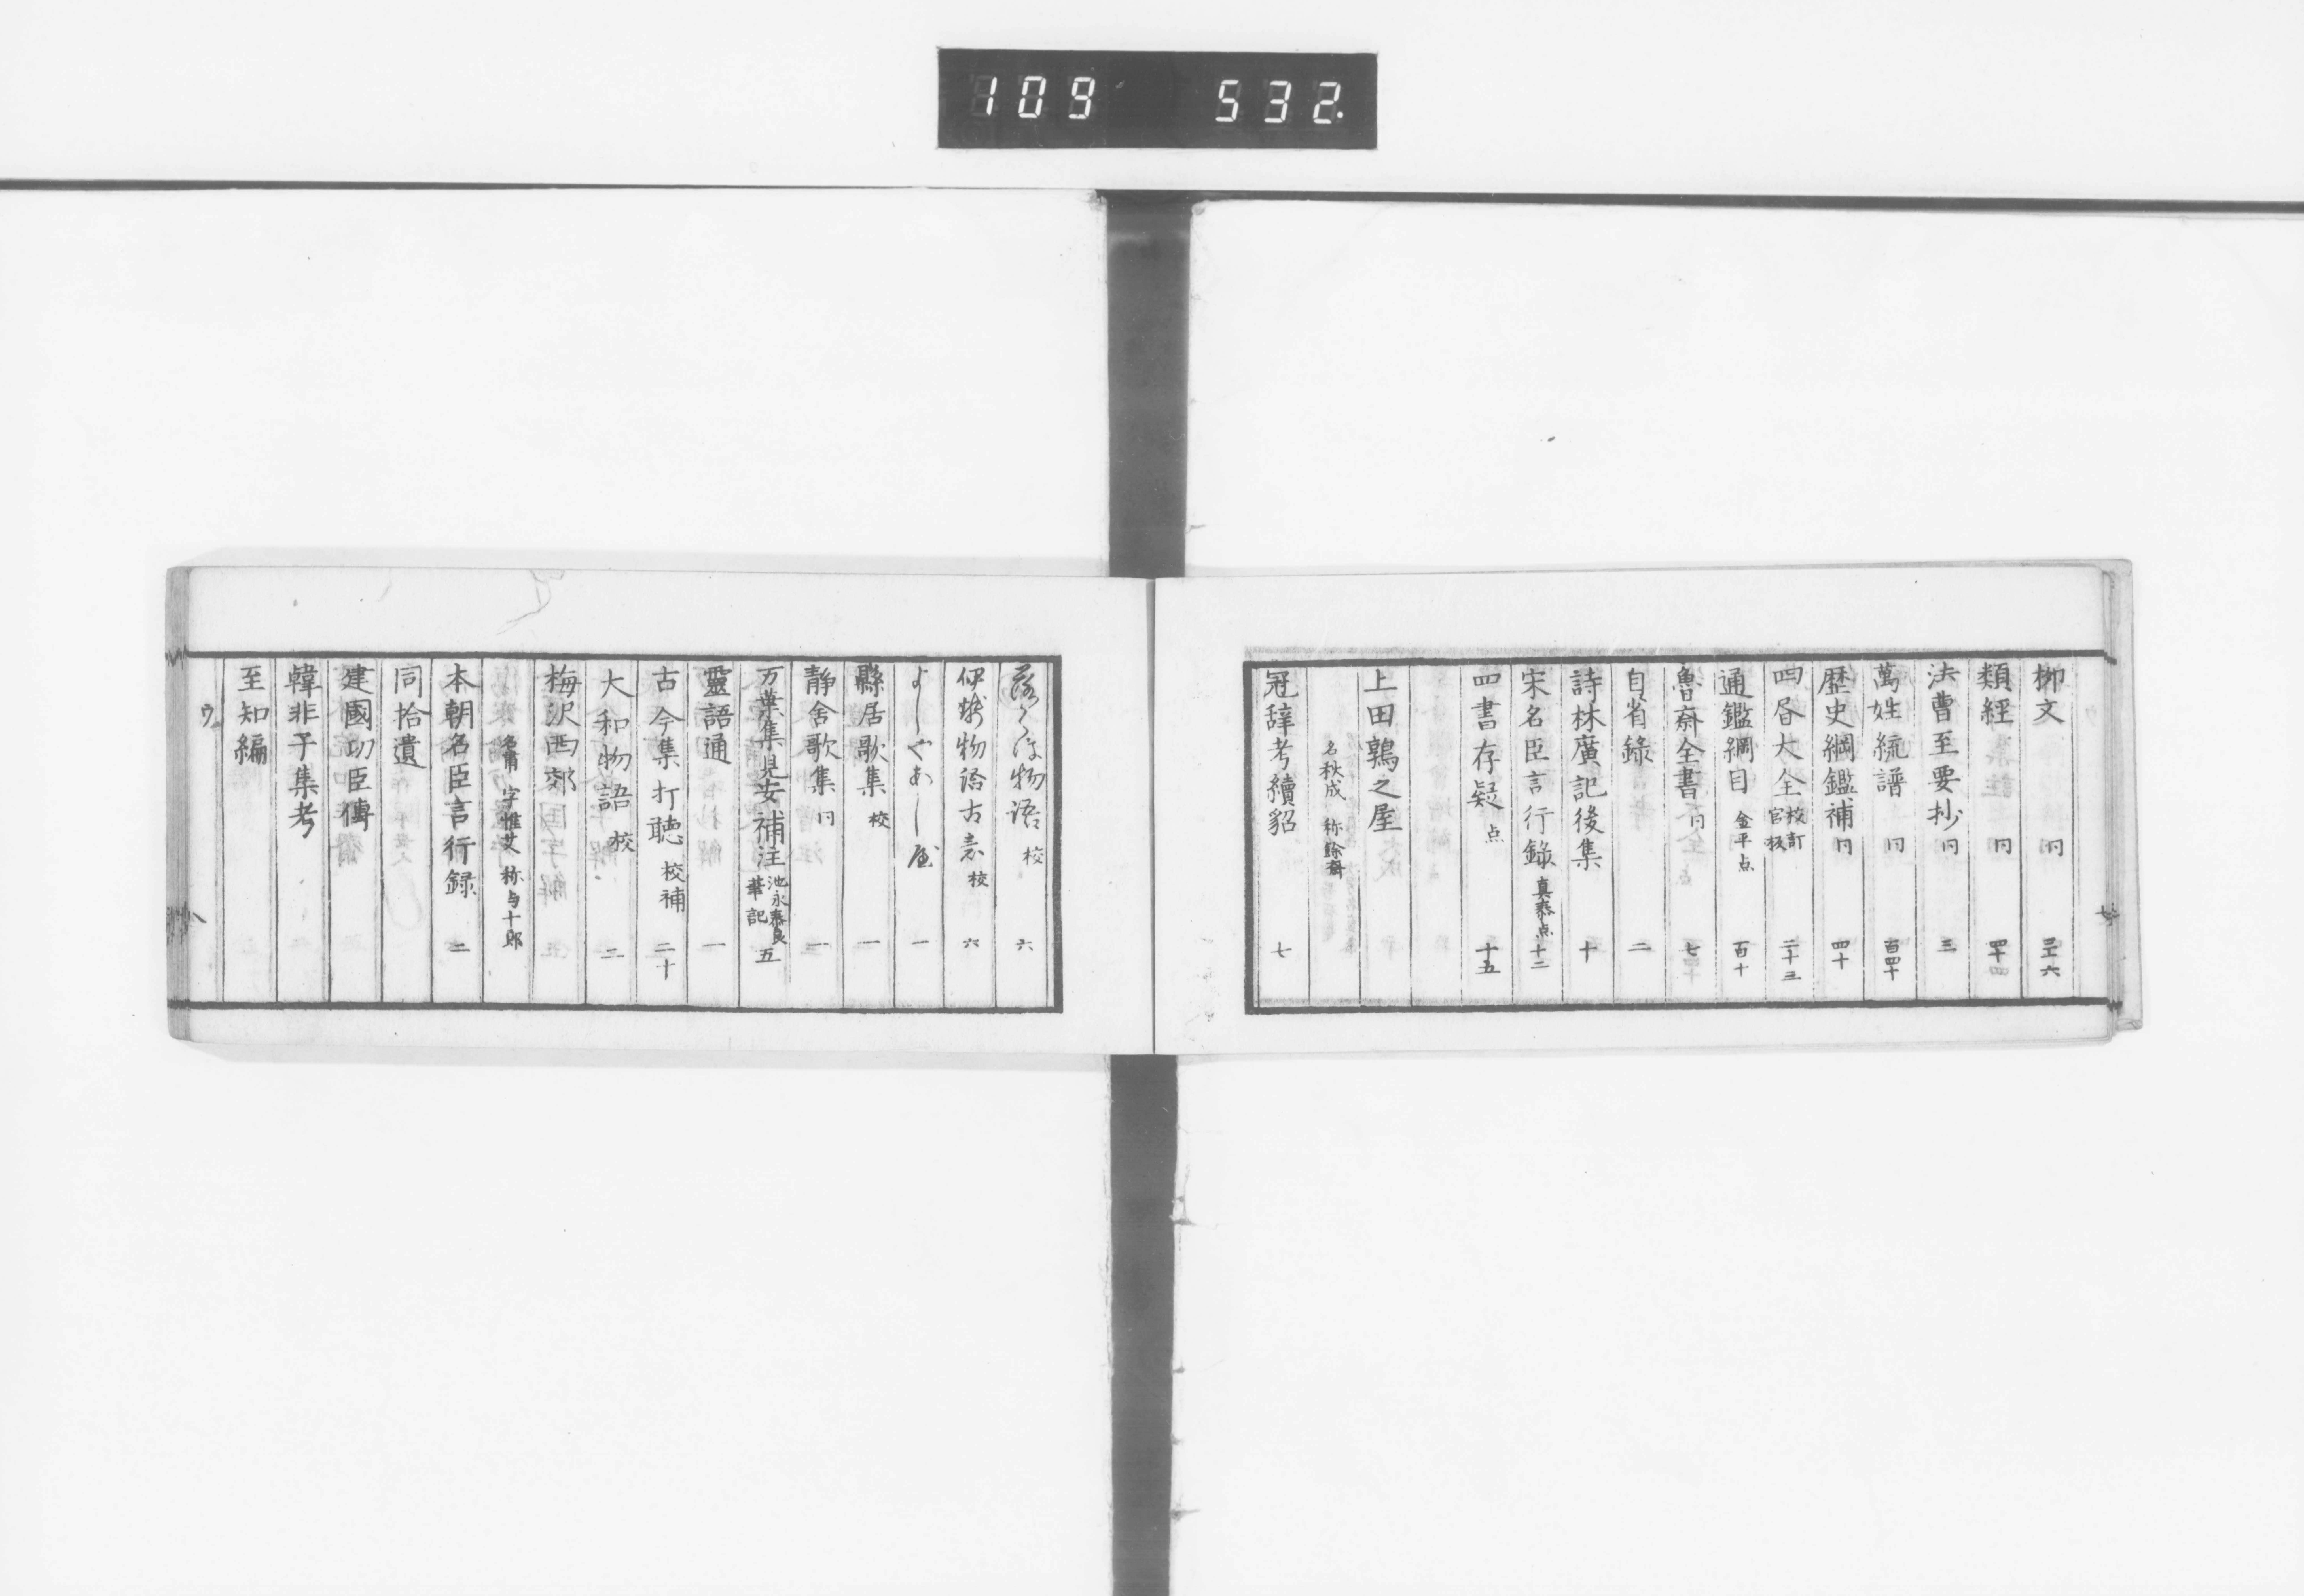 109 532.
柳文 仝 三十六
類経 仝 四十
法曹至要抄 仝 三
萬姓統譜 仝 百四十
歴史綱鑑補 仝 四十
四昏大全 校訂官板 二十三
通鑑綱目 金平点 百十
魯齋全書 仝 七
自省錄 二
詩林廣記後集 十
宋名臣言行錄 真桼点 十二
四書存疑 点 十五
上田鶉之屋
名秋成 称餘齋
冠辞考續貂 七
落くほ物语 校 六
伊勢物语古意 校 六
よしやあしや 一
縣居歌集 校 一
静舍歌集 仝 一
万葉集見安補注 池永桼良筆記 五
靈語通 一
古今集打聴 校補 二十
大和物語 校 二
梅沢西郊
名甫 字惟艾 称与十郎
本朝名臣言行録 二
同拾遺
建國功臣傳
韓非子集考
至知編
ウ